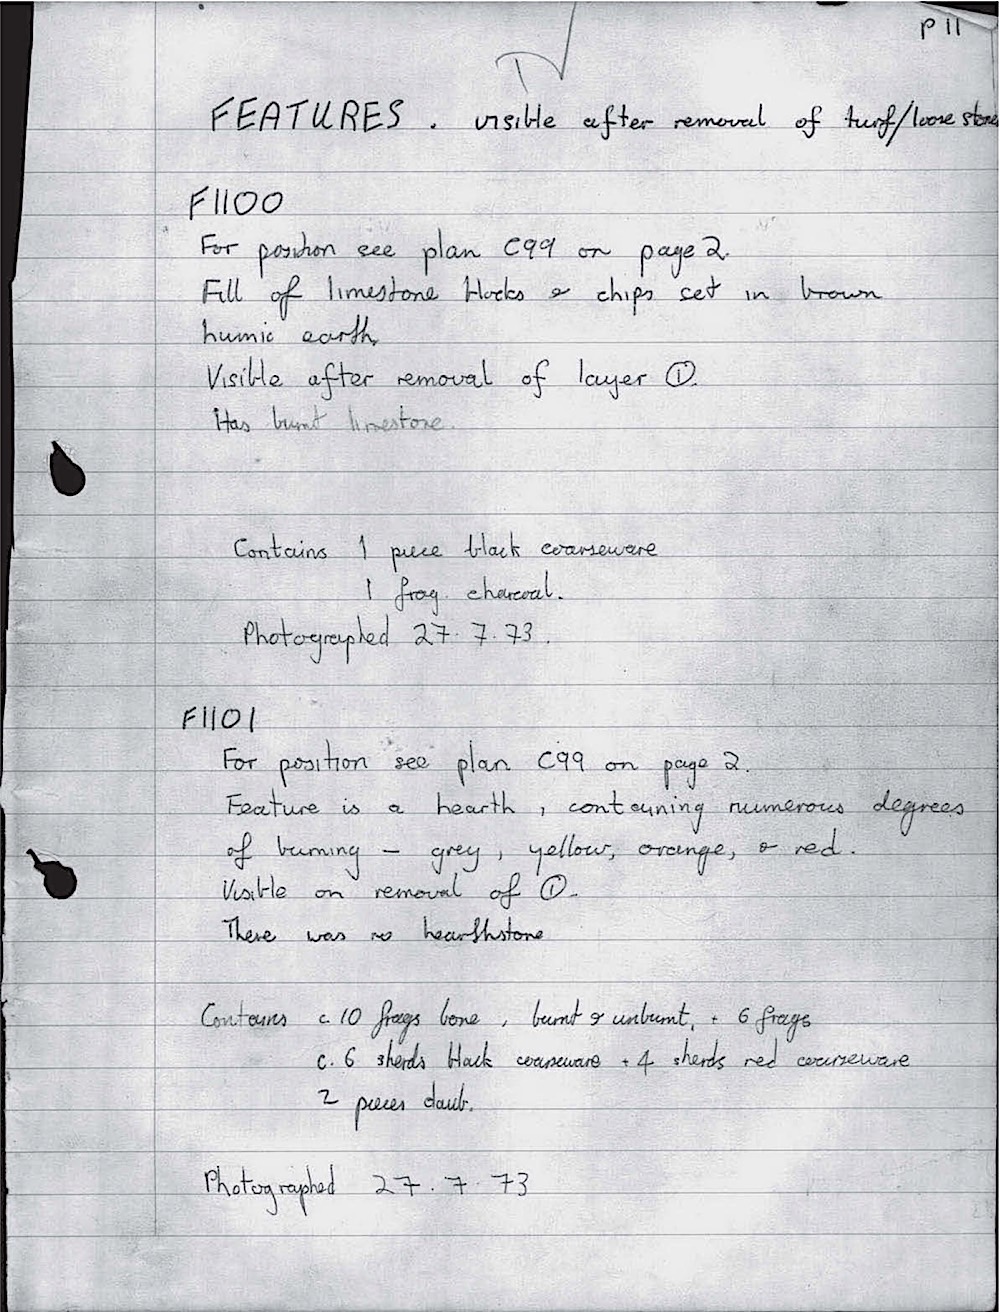 P 11
FEATURES. visible after removal of turf/loose stones
F1100
For position see plan C99 on page 2.
Fill of limestone blocks & chips set in brown
humic earth,
Visible after removal of layer ①.
Has burnt limestone.
Contains 1 piece black coarseware
1 frag. charcoal.
Photographed 27.7.73.
F1101
For position see plan C99 on page 2.
Feature is a hearth, containing numerous degrees
of burning – grey, yellow, orange, & red.
Visible on removal of ①.
There was no hearthstone
Contains c. 10 frags bone, burnt & unburnt, + 6 frags
c. 6 sherds black coarseware + 4 sherds red coarseware
2 pieces daub.
Photographed 27.7.73